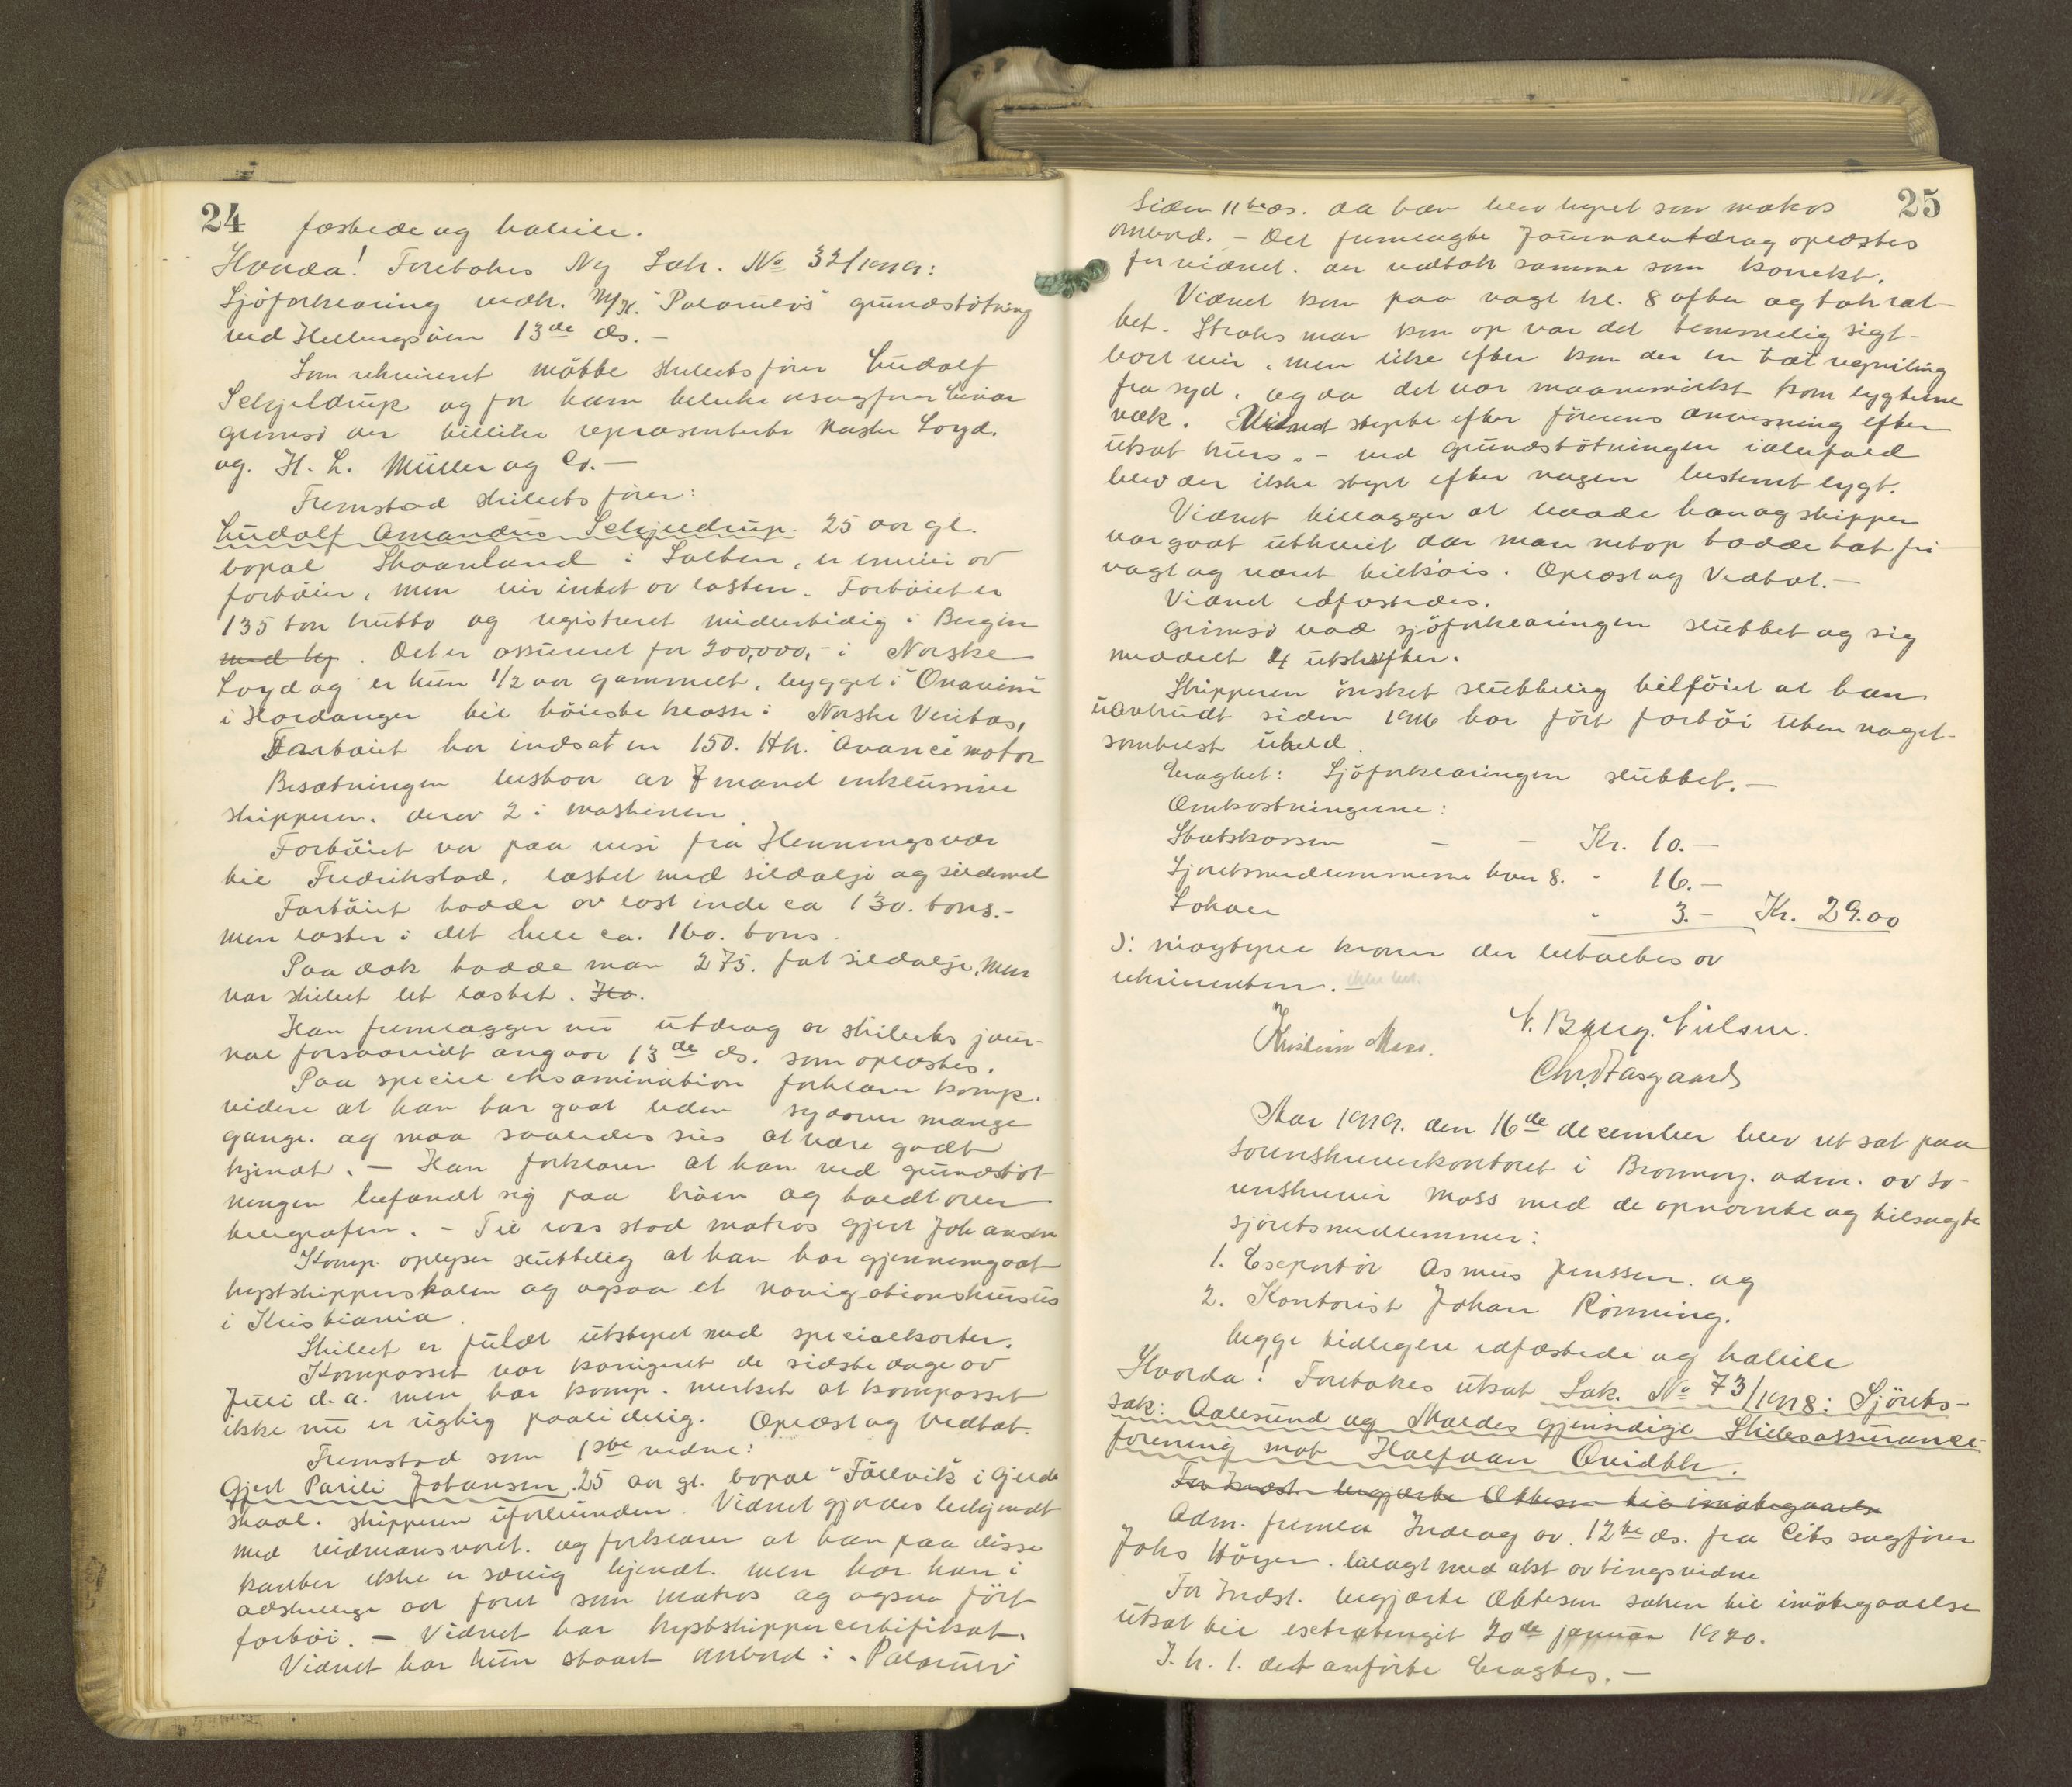 24
fæstede og habile.
Hvorda! Foretokes Ny Sak. No 32/1919:
Sjöforklaring vedk. M/K. "Polarulv's" grundstötning
ved Helbergsöen 13de ds. -
Som rekvirent mötte skibets förer Ludolf
Selgjeldrup og for ham beluke sagförer Einar
Grimsö der tillike repræsenterte Norske Loyd.
og. H. L. Müller og Co. -
Fremstod skibets förer:
Ludolf Amandus Selgjeldrup. 25 aar gl.
bopæl Skaanland i Salten, er eneeier av
fartöiet, men eier intet av lasten. Fartöiet er
135 ton brutto og registreret midlertidig i Bergen
med kj. Det er assureret for 200,000,- i Norske
Loyd og er kun 1/2 aar gammelt, bygget i Ønavim
i Hardanger til höieste klasse i Norske Veritas,
Fartöiet har indsat en 150. Hk. "Avance" motor
Besætningen bestaar av 7 mand inklusive
skipperen. derav 2 i maskinen.
Fartöiet var paa reise fra Henningsvær
til Fredrikstad, lastet med sildolje og sildemel
Fartöiet hadde av last inde ca 130. tons.-
men laster i det hele ca. 160. tons.
Paa dæk hadde man 275. fat sildolje, men
var skibet let lastet. Ho.
Han fremlægger nu utdrag av skibets jour-
nal forsaavidt angaar 13de ds. som oplæstes.
Paa speciel eksamination forklarer komp.
videre at han har gaat leden sydover mange
gange. og maa saaledes sies at være godt
kjendt. - Han forklarer at han ved grundstöt-
ningen befandt sig paa broen og holdt over
telegrafen. - Til rors stod matros Gjert Johansen
Komp. oplyser sluttelig at han har gjennemgaat
kystskipperskolen og ogsaa et navigationskursus
i Kristiania.
Skibet er fuldt utstyret med specialkarter.
Kompasset var korrigeret de sidste dage av
Juli d.a. men har komp. merket at kompasset
ikke nu er rigtig paalidelig. Oplæst og Vedtat.
Fremstod som 1ste vidne:
Gjert Parili Johansen. 25 aar gl. bopæl "Fællvik" i Gjelde
skaal. skipperen uforbunden. Vidnet gjordes bekjendt
med vidneansvaret. og forklarer at han paa disse
kanter ikke er særlig kjendt. men har han i
adskillige aar faret som matros og ogsaa fört
fartöi. - Vidnet har kystskippercertifikat.
Vidnet har kun staaet ombord i "Polarulv"
25
siden 11te ds. da han blev hyret som matros
ombord. - Det fremlagte Journalutdrag oplæstes
for vidnet. der vedtok samme som korrekt.
Vidnet kom paa vagt kl. 8 aften og tok rat-
tet. Straks man kom op var det temmelig sigt-
bart veir, men like efter kom der en tæt regniling
fra syd, og da det var maanemörkt kom lygterne
væk. Vidnet styrte efter förerens anvisning efter
utsat kurs. - ved grundstötningen ialfald
blev der ikke styrt efter nogen bestemt lygt.
Vidnet tillægger at baade han og skipper
var godt uthvilt da man netop hadde hat fri-
vagt og været tilköis. Oplæst og Vedtat. -
Vidnet edfæstedes.
Grimsö bad sjöforklaringen sluttet og sig
meddelt 4 utskrifter.
Skipperen önsket sluttelig tilföiet at han
uavbrudt siden 1916 har fört fartöi uten noget-
somhelst uheld.
Eragtet: Sjöforklaringen sluttet. -
Omkostningerne:
Statskassen - - Kr. 10.-
Sjöretsmedlemmerne hver 8. " 16.-
Lokale " 3.- Kr. 29.00
ɔ: niogtyve kroner der betaltes av
rekvirenten. - ikke bet.
Kristian Moss. N. Baug. Nielsen.
Chr. Aasgaard
Aar 1919. den 16de december blev ret sat paa
sorenskriverkontoret i Brönnöy. adm. av so-
renskriver Moss med de opnævnte og tilsagte
sjöretsmedlemmer:
1. Exportör Asmus Jenssen. og
2. Kontorist Johan Rönning.
begge tidligere edfæstede og habile
Hvorda! Foretokes utsat Sak. No 73/1918: Sjörets-
sak: Aalesund og Moldes gjensidige Skibsassurance-
forening mot Halfdan Qvidth.
For Indst. begjærte Ottesen til imötegaaelse
Adm. fremla Indlæg av 12te ds. fra Cits sagförer
Johs Höyer. bilagt med akt av tingsvidne
For Indst. begjærte Ottesen saken til imötegaaelse
utsat til extratinget 20de januar 1920.
I. h. t. det anförte Eragtes. -